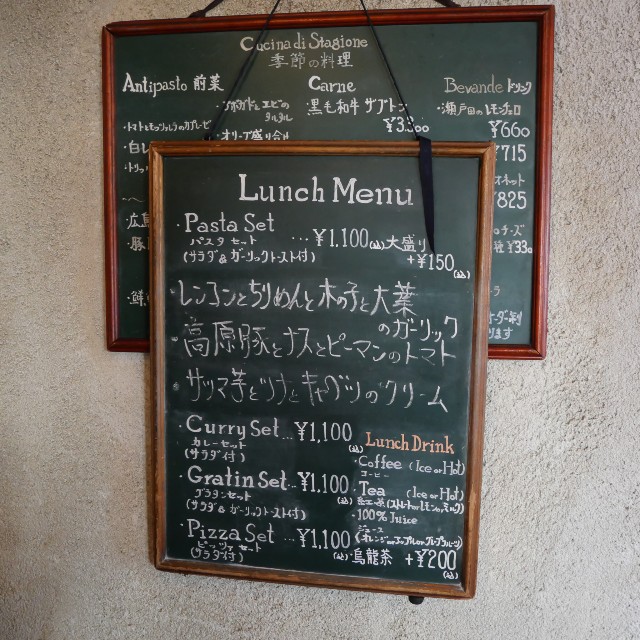 Cucina di Stagione
季節の料理
Antipasto 前菜
Carne
・黒毛和牛 サガトン
¥3,300
Bevande ドリンク
・瀬戸田のレモンチェロ
¥660
¥715
¥825
チーズ
¥330
・オリーブ盛り合せ
・広島
・豚
Lunch Menu
・Pasta Set
パスタセット
(サラダ&ガーリックトースト付)
… ¥1,100(込)
大盛り
+¥150(込)
・レンコンとちりめんと木の子と大葉
のガーリック
・高原豚とナスとピーマンのトマト
・サツマ芋とツナとキャベツのクリーム
・Curry Set … ¥1,100(込)
カレーセット
(サラダ付)
・Gratin Set … ¥1,100(込)
グラタンセット
(サラダ&ガーリックトースト付)
・Pizza Set … ¥1,100(込)
ピッツァセット
(サラダ付)
Lunch Drink
・Coffee (Ice or Hot)
コーヒー
・Tea (Ice or Hot)
紅茶(ストレート or レモン or ミルク)
・100% Juice
ジュース
(オレンジ or アップル or グレープフルーツ)
・烏龍茶 +¥200(込)